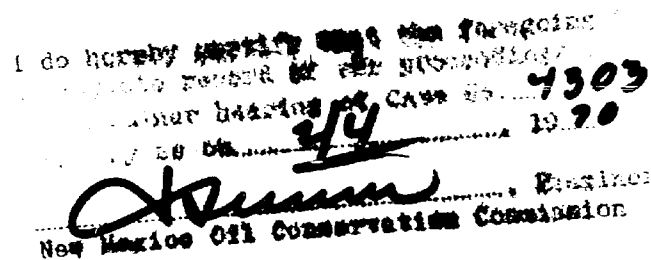 I do hereby certify that the foregoing
record of the proceedings
hearing of Case No. 4303
by me on 2/4, 1970
, Examiner
New Mexico Oil Conservation Commission